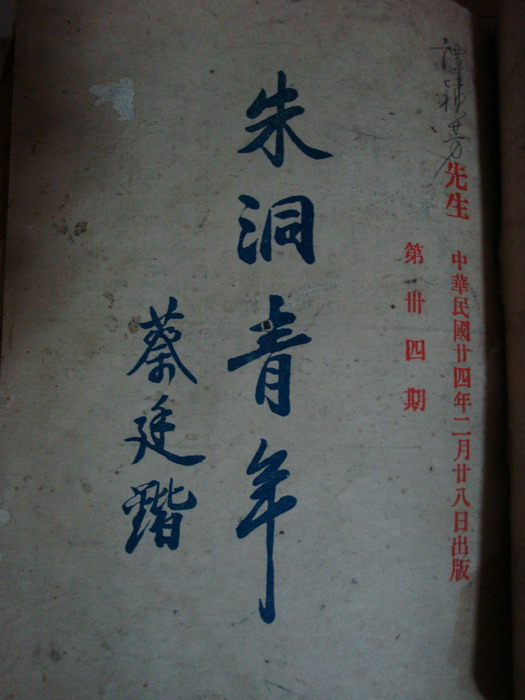 先生
中華民國廿四年二月廿八日出版
第卅四期
朱洞青年
蔡廷鍇